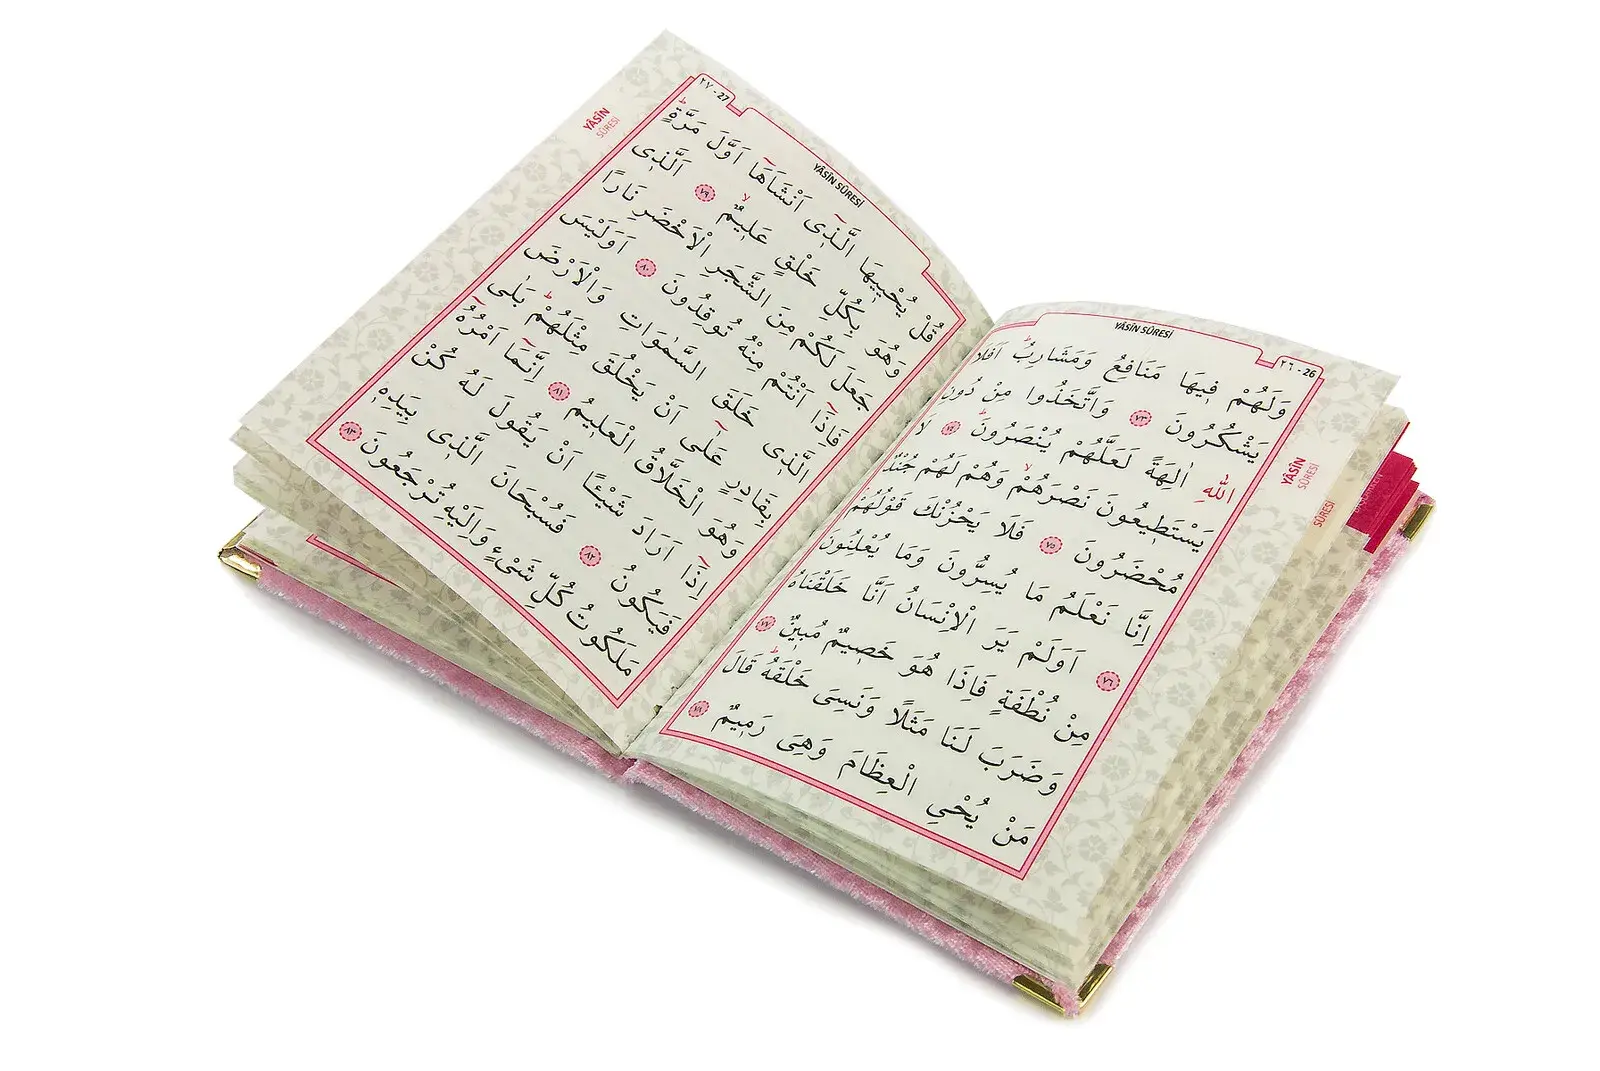 YÂSİN SÛRESİ
٢٦ - 26
وَلَهُمْ فِيهَا مَنَافِعُ وَمَشَارِبُۜ اَفَلَا
يَشْكُرُونَ ٧٣ وَاتَّخَذُوا مِنْ دُونِ
اللّٰهِ اٰلِهَةً لَعَلَّهُمْ يُنْصَرُونَۜ ٧٤ لَا
يَسْتَطِيعُونَ نَصْرَهُمْۙ وَهُمْ لَهُمْ جُنْدٌ
مُحْضَرُونَ ٧٥ فَلَا يَحْزُنْكَ قَوْلُهُمْ
اِنَّا نَعْلَمُ مَا يُسِرُّونَ وَمَا يُعْلِنُونَ
٧٦ اَوَلَمْ يَرَ الْاِنْسَانُ اَنَّا خَلَقْنَاهُ
مِنْ نُطْفَةٍ فَاِذَا هُوَ خَصِيمٌ مُبِينٌ ٧٧
وَضَرَبَ لَنَا مَثَلًا وَنَسِىَ خَلْقَهُۜ قَالَ
مَنْ يُحْيِ الْعِظَامَ وَهِىَ رَمِيمٌ ٧٨
YÂSİN
SÛRESİ
SÛRESİ
YÂSİN SÛRESİ
٢٧ - 27
قُلْ يُحْيِيهَا الَّذِٓى اَنْشَاَهَٓا اَوَّلَ مَرَّةٍۜ
وَهُوَ بِكُلِّ خَلْقٍ عَلِيمٌۙ ٧٩ اَلَّذِى
جَعَلَ لَكُمْ مِنَ الشَّجَرِ الْاَخْضَرِ نَارًا
فَاِذَٓا اَنْتُمْ مِنْهُ تُوقِدُونَ ٨٠ اَوَلَيْسَ
الَّذِى خَلَقَ السَّمٰوَاتِ وَالْاَرْضَ
بِقَادِرٍ عَلٰٓى اَنْ يَخْلُقَ مِثْلَهُمْۜ بَلٰى
وَهُوَ الْخَلَّاقُ الْعَلِيمُ ٨١ اِنَّمَٓا اَمْرُهُٓ
اِذَٓا اَرَادَ شَيْئًا اَنْ يَقُولَ لَهُ كُنْ
فَيَكُونُ ٨٢ فَسُبْحَانَ الَّذِى بِيَدِهٖ
مَلَكُوتُ كُلِّ شَىْءٍ وَاِلَيْهِ تُرْجَعُونَ ٨٣
YÂSİN
SÛRESİ